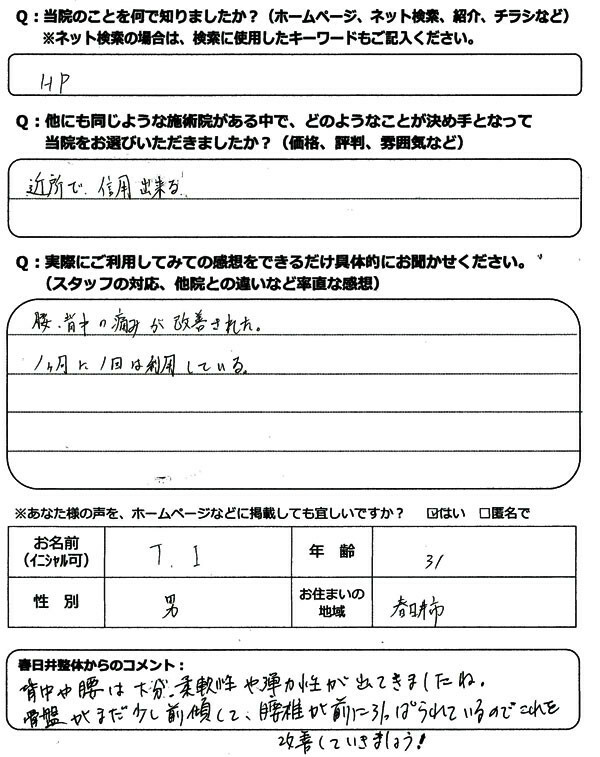 Q：当院のことを何で知りましたか？（ホームページ、ネット検索、紹介、チラシなど）
※ネット検索の場合は、検索に使用したキーワードもご記入ください。
HP
Q：他にも同じような施術院がある中で、どのようなことが決め手となって
当院をお選びいただきましたか？（価格、評判、雰囲気など）
近所で、信用出来る。
Q：実際にご利用してみての感想をできるだけ具体的にお聞かせください。
（スタッフの対応、他院との違いなど率直な感想）
腰、背中の痛みが改善された。
1ヶ月に1回は利用している。
※あなた様の声を、ホームページなどに掲載しても宜しいですか？ ☑はい □匿名で
お名前 T. I 年 齢 31
（イニシャル可）
性 別 男 お住まいの地域 春日井市
春日井整体からのコメント：
背中や腰は大分、柔軟性や弾力性が出てきましたね。
骨盤がまだ少し前傾して、腰椎が前に引っぱられているのでこれを
改善していきましょう！